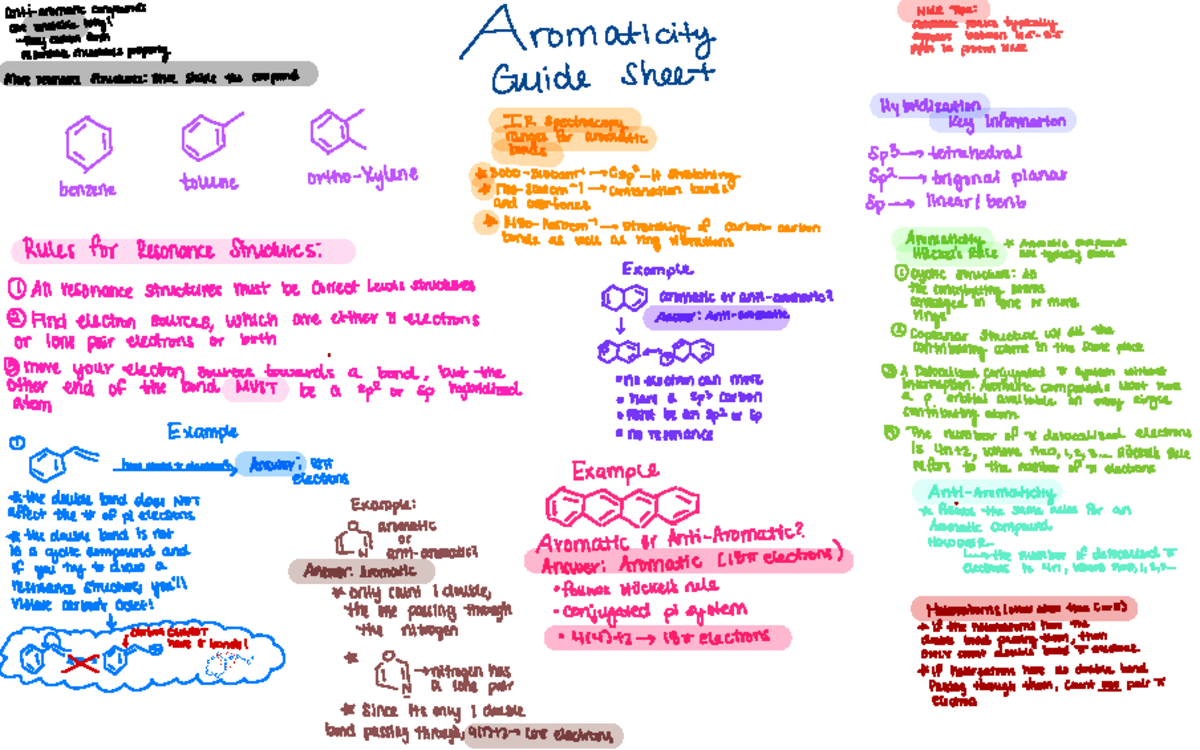 Anti-aromatic compounds
are unstable Why?
property
More resonance structures: More stable the compound
Aromaticity
Guide Sheet
NMR Tips:
Aromatic typically
appear between
benzene
toluene
ortho-xylene
IR Spectroscopy
ranges for aromatic
bonds
stretching
and overtones
stretching of carbon-carbon
bonds as well as ring vibrations
Hybridization
Key Information
Sp³ → tetrahedral
Sp² → trigonal planar
Sp → linear/bent
Rules for Resonance Structures:
① All resonance structures must be correct Lewis structures
② Find electron sources, which are either π electrons
or lone pair electrons or both
③ move your electron source towards a bond, but the
other end of the bond MUST be a sp² or sp hybridized
atom
Example
①
Answer: π
electrons
* the double bond does NOT
affect the # of pi electrons
* the double bond is not
in a cyclic compound and
if you try to draw a
resonance structure, you'll
violate carbon's octet!
carbon CANNOT
have 5 bonds!
Example
aromatic or anti-aromatic?
Answer: Anti-aromatic
• no electron can move
• have a sp³ carbon
• must be an sp² or sp
• no resonance
Example:
aromatic
or
anti-aromatic?
N
Answer: Aromatic
* only count 1 double,
the one passing through
the nitrogen
*
N
→ nitrogen has
a lone pair
* Since its only 1 double
bond passing through, electrons
Example
Aromatic or Anti-Aromatic?
Answer: Aromatic (18π electrons)
• follows Hückel's rule
• conjugated pi system
• 4(4)+2 → 18π electrons
Aromaticity
Hückel's Rule
* Aromatic compounds
are typically stable
① Cyclic structure: All
the contributing atoms
arranged in one or more
rings
② Coplanar structure w/ all the
contributing atoms in the same place
③ A Delocalized conjugated π system without
interruption. Aromatic compounds must have
a p orbital available on every single
contributing atom.
The number of π delocalized electrons
is 4n+2, where n=0,1,2,3... Hückel's rule
refers to the number of π electrons
Anti-Aromaticity
* Follows the same rules for an
Aromatic compound
However...
→ the number of delocalized π
electrons is 4n, where n=0,1,2...
* if the heteroatom has the
double bond passing them, then
ONLY count double bond π electrons
* if heteroatom has no double bond
passing through them, count pair π